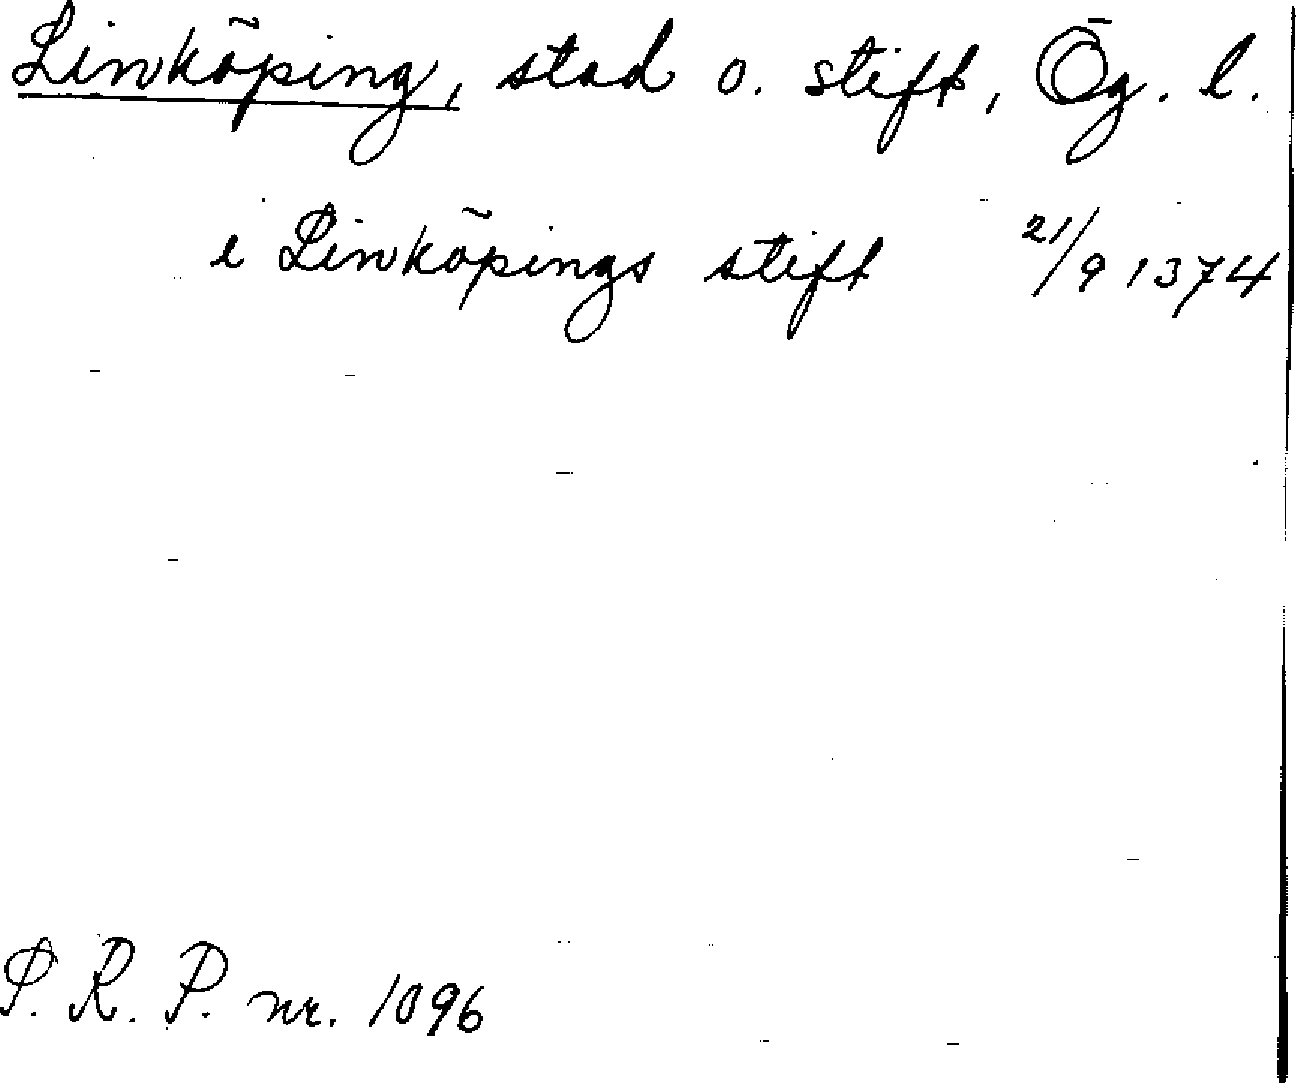 Linköping, stad o. stift, Ög. l.
i Linköpings stift 21/9 1374
S. R. P. nr. 1096